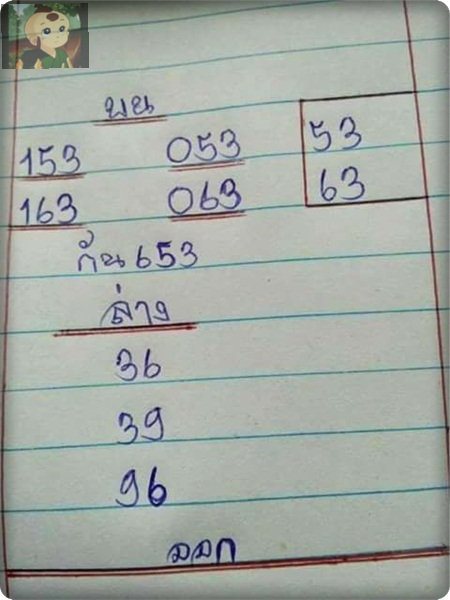 บน
153 053 53
163 063 63
กัน 653
ล่าง
36
39
96
ออก